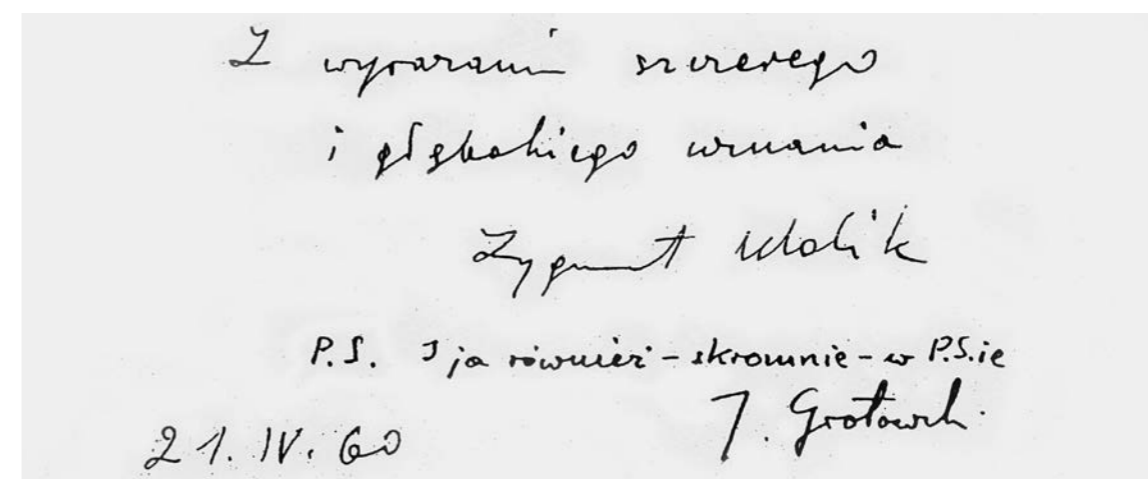 Z wyrazami szczerego
i głębokiego uznania
Zygmunt Molik
P.S. I ja również - skromnie - w P.S.ie
J. Grotowski
21.IV.60